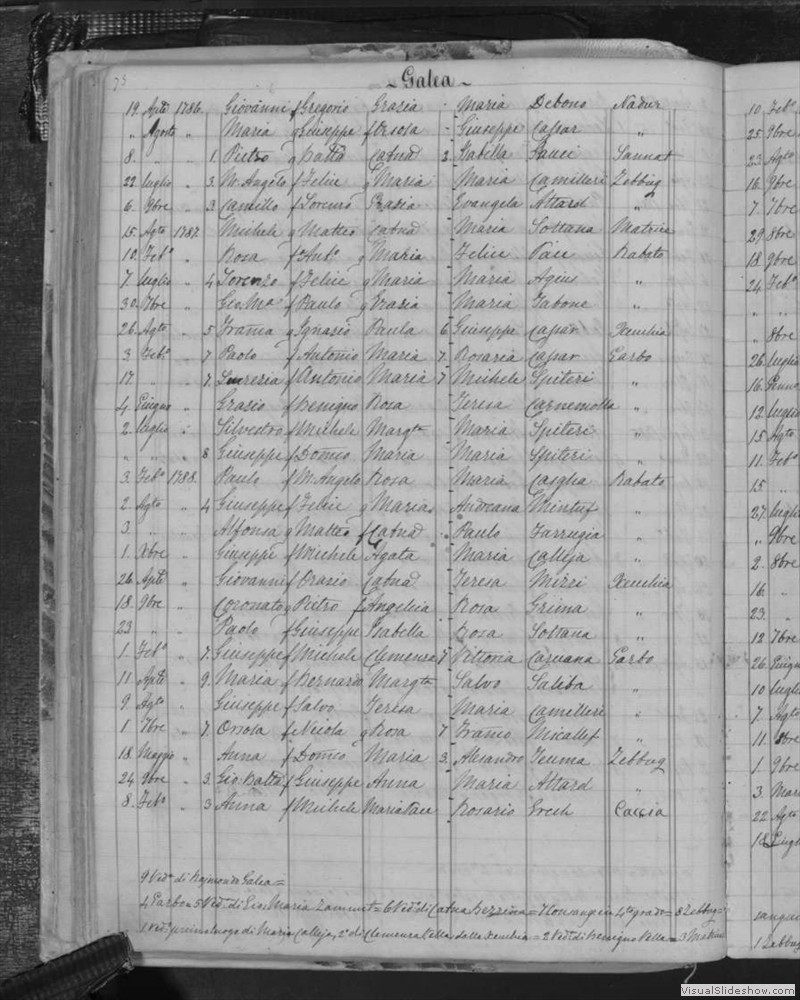 75
Galea
19. Aple 1786. Giovanni f Gregorio Grazia - Maria Debono Nadur
" Agosto " Maria q Giuseppe f Orsola - Giuseppe Caspar "
8. " " 1. Pietro q Batta Catna 2. Isabella Sannat
22. luglio " 3. M. Angelo f Felice q Maria Maria Camilleri Zebbug
6. 9bre " 3 Camillo f Lorenzo Grazia Evangela Attard "
15. Agto 1787. Michele q Matteo Catna Maria Soltana Matrice
10. Febo " Rosa f Anto q Maria Felice Pace Rabato
7. luglio " 4 Lorenzo f Felice q Maria Maria Agius "
30. 7bre " Gio. Ma f Paulo q Grazia Maria Tabone "
26. Agto " 5 Franca q Ignazio Paula 6. Giuseppe Caspar Xeuchia
3 Febo " 7 Paolo f Antonio Maria 7. Rosaria Caspar Garbo
17. " " 7. f Antonio Maria 7 Michele Spiteri "
4. Giugno " Grazio f Benigno Rosa Teresa Carnemolla "
2. luglio " Silvestro f Michele Margta Maria Spiteri "
" " " 8 Giuseppe f Domco Maria Maria Spiteri "
3. Febo 1788. Paulo f M. Angelo Rosa Maria Rabato
2. Agto " 4 Giuseppe f Felice q Maria Andreana Mintuf "
3. " " Alfonsa q Matteo f Catna - Paulo Farrugia "
1. Xbre " Giuseppe f Michele Agata Maria Calleja "
26. Aple " Giovanni f Orazio Catna Teresa Xeuchia
18. 9bre " Coronato q Pietro f Angelica Rosa Grima "
23 " " Paolo f Giuseppe Isabella Rosa Soltana "
1. Febo " 7. Giuseppe f Michele Clemenza 7 Vittoria Caruana Garbo
11. Aple " 9. Maria f Bernardo Margta Salvo Saliba "
9. Agto " Giuseppe f Salvo Teresa Maria Camilleri "
1 7bre " 7. Orsola f Nicola q Rosa 7 Franco Micallef "
18. Maggio " Anna f Domco Maria 3. Alesandro Teuma Zebbug
24. 9bre " 3. Gio. Batta f Giuseppe Anna Maria Attard "
8. Febo " 3 Anna f Michele Maria Pace Rosario Grech Caccia
9 Veda di Rajmondo Galea =
4 Garbo = 5 Veda di Gio. Maria Zammit = 6 Veda di Catna = 7 Consang in 4to grado = 8 Zebbug =
1 Veda di Maria Calleja, 2o di Clemenza Vella, della Xeuchia = 2 Veda di Benigno Vella = 3
10. Febo
25. 9bre
23. Agto
16. 9bre
7. 7bre
29. 8bre
18. 9bre
24. Febo
" "
" 8bre
26. luglio
16.
12. luglio
15. Agto
11. Febo
15. "
27. luglio
" 9bre
2. 8bre
16. "
23. "
12. 7bre
26.
10 luglio
7. Agto
11. 8bre
1. 9bre
3. Mar
22. Agto
18.
1 Zebbug
VisualSlideshow.com